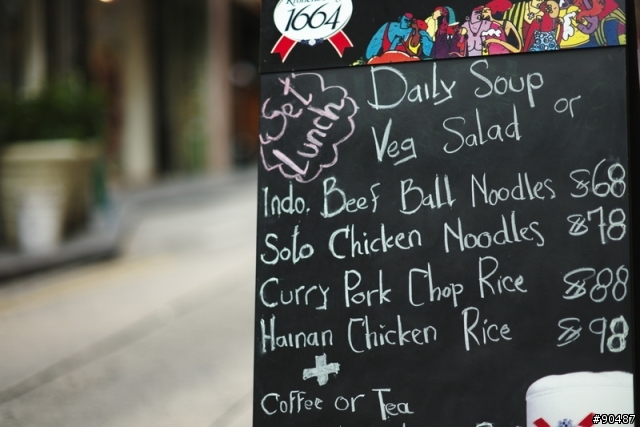 1664
Set
Lunch
Daily Soup
or
Veg Salad
Indo. Beef Ball Noodles $68
Soto Chicken Noodles $78
Curry Pork Chop Rice $88
Hainan Chicken Rice $98
+
Coffee or Tea
#90487